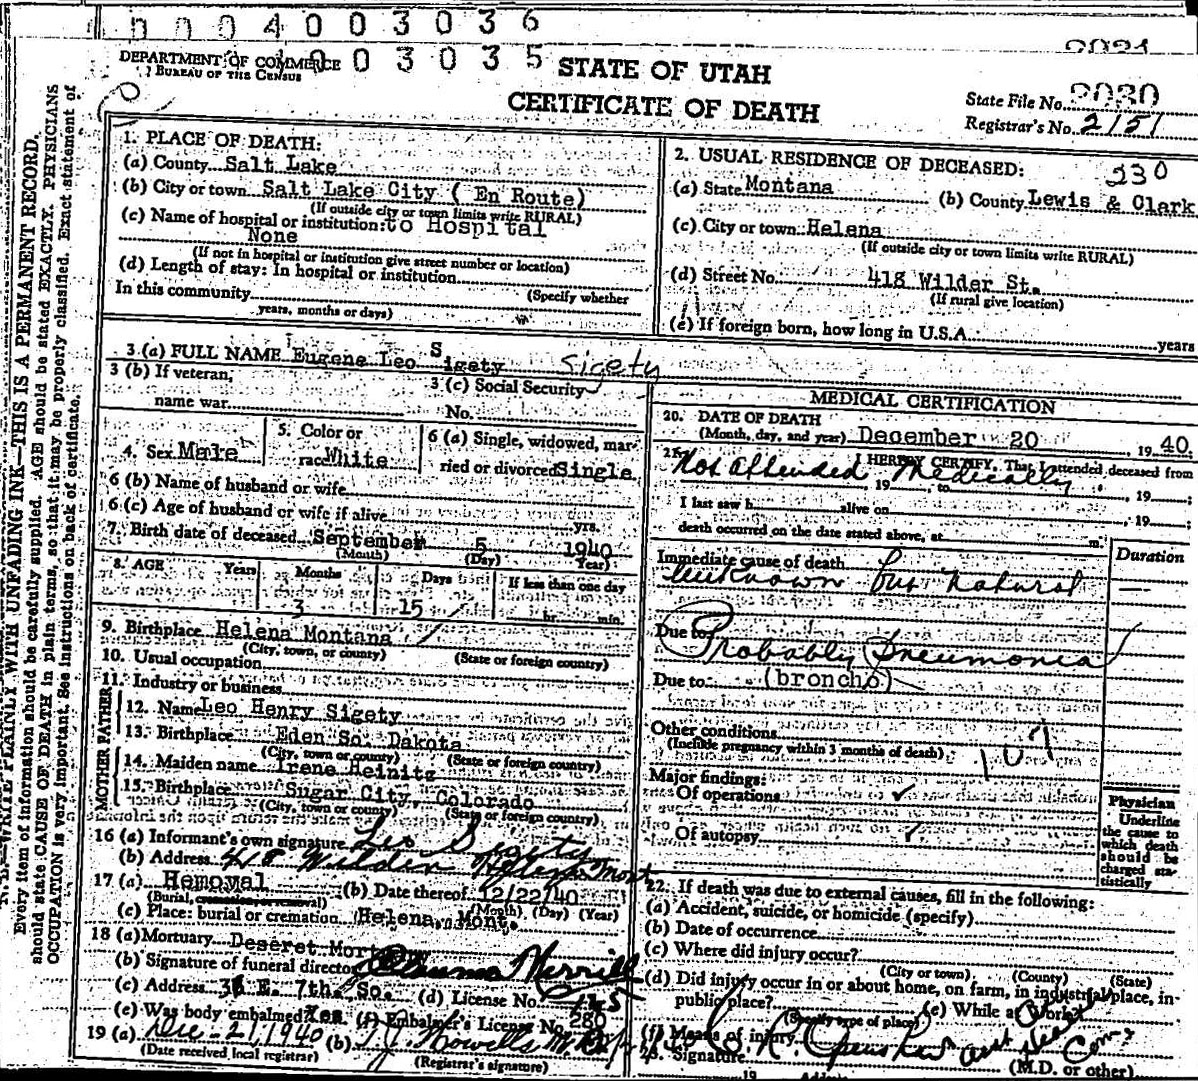 0 0 0 4 0 0 3 0 3 6
0 0 3 0 3 5
DEPARTMENT OF COMMERCE
BUREAU OF THE CENSUS
STATE OF UTAH
CERTIFICATE OF DEATH
State File No. 2030
Registrar's No. 2151
1. PLACE OF DEATH:
(a) County Salt Lake
(b) City or town Salt Lake City ( En Route)
(If outside city or town limits write RURAL)
(c) Name of hospital or institution: to Hospital
None
(If not in hospital or institution give street number or location)
(d) Length of stay: In hospital or institution
(Specify whether
In this community
years, months or days)
2. USUAL RESIDENCE OF DECEASED: 230
(a) State Montana (b) County Lewis & Clark
(c) City or town Helena
(If outside city or town limits write RURAL)
(d) Street No. 418 Wilder St.
(If rural give location)
(e) If foreign born, how long in U.S.A. years
3 (a) FULL NAME Eugene Leo Sigety Sigety
3 (b) If veteran,
name war
3 (c) Social Security
No.
4. Sex Male
5. Color or
race White
6 (a) Single, widowed, mar-
ried or divorced Single
6 (b) Name of husband or wife
6 (c) Age of husband or wife if alive yrs.
7. Birth date of deceased September 5 1940
(Month) (Day) Year)
8. AGE Years Months Days If less than one day
3 15 hr. min.
9. Birthplace Helena Montana
(City, town, or county) (State or foreign country)
10. Usual occupation
11. Industry or business
FATHER
12. Name Leo Henry Sigety
13. Birthplace Eden So. Dakota
(City, town or county) (State or foreign country)
MOTHER
14. Maiden name Irene Heinitz
15. Birthplace Sugar City, Colorado
(City, town or county) (State or foreign country)
16 (a) Informant's own signature Leo Sigety
(b) Address 418 Wilder Helena Mont
17 (a) Removal (b) Date thereof 12/22/40
(Burial, cremation, or removal) (Month) (Day) (Year)
(c) Place: burial or cremation Helena, Mont.
18 (a) Mortuary Deseret Mort
(b) Signature of funeral director Merrill
(c) Address 36 E. 7th. So. (d) License No.
(e) Was body embalmed? Yes (f) Embalmer's License No. 280
19 (a) Dec - 21, 1940 (b)
(Date received local registrar) (Registrar's signature)
MEDICAL CERTIFICATION
20. DATE OF DEATH
(Month, day, and year) December 20, 19 40.
21. I HEREBY CERTIFY, That I attended deceased from
Not attended Medically
19 , to , 19 ;
I last saw h alive on , 19 ;
death occurred on the date stated above, at m.
Immediate cause of death Duration
unknown but natural —
Due to Probably Pneumonia
Due to (broncho)
Other conditions
(Include pregnancy within 3 months of death) 107
Major findings:
Of operations
Of autopsy
Physician
Underline
the cause to
which death
should be
charged sta-
tistically
22. If death was due to external causes, fill in the following:
(a) Accident, suicide, or homicide (specify)
(b) Date of occurrence
(c) Where did injury occur?
(City or town) (County) (State)
(d) Did injury occur in or about home, on farm, in industrial place, in
public place? (e) While at work?
(Specify type of place)
(f) Means of injury
23. Signature
(M.D. or other)
WRITE PLAINLY WITH UNFADING INK—THIS IS A PERMANENT RECORD.
Every item of information should be carefully supplied. AGE should be stated EXACTLY. PHYSICIANS
should state CAUSE OF DEATH in plain terms, so that it may be properly classified. Exact statement of
OCCUPATION is very important. See instructions on back of certificate.